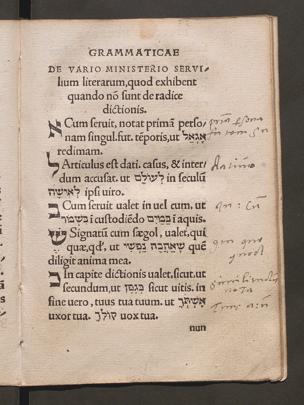 GRAMMATICAE
DE VARIO MINISTERIO SERVI-
lium literarum, quod exhibent
quando nõ sunt de radice
dictionis.
א Cum seruit, notat primã perso-
nam singul. fut. tẽporis, ut אֶגְאַל
redimam.
ל Articulus est dati. casus, & inter-
dum accusat. ut לְעוֹלָם in seculũ
לְאִישָׁהּ ipsi uiro.
ב Cum seruit ualet in uel cum. ut
בִּשְׁמוֹר ĩ custodiẽdo בַּמַּיִם ĩ aquis.
שׁ Signatũ cum sægol, ualet, qui
quæ, qď, ut שֶׁאָהֲבָה נַפְשִׁי quẽ
diligit anima mea.
כ In capite dictionis ualet, sicut. ut
secundum, ut כַּגֶּפֶן sicut uitis. in
fine uero, tuus tua tuum. ut אִשְׁתְּךָ
uxor tua. קוֹלֵךְ uox tua.
nun